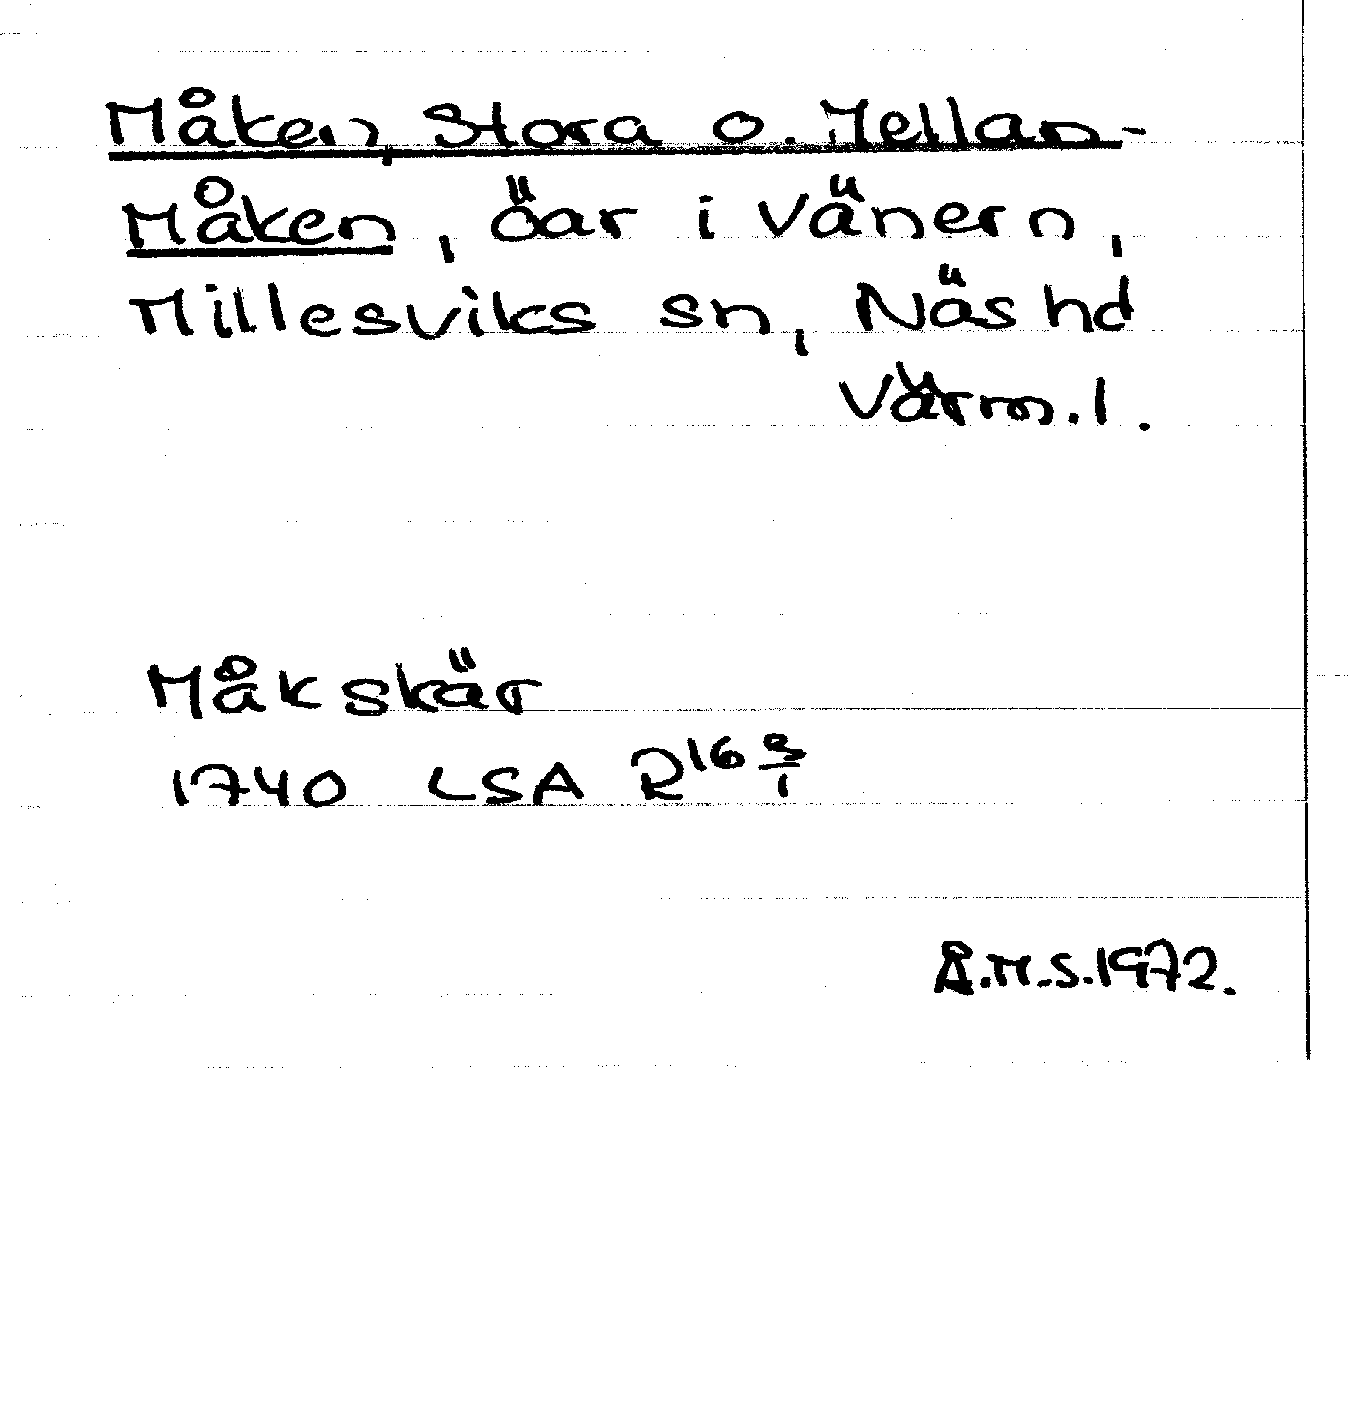 Måken, Stora o. Mellan-
Måken, öar i Vänern,
Millesviks sn, Näs hd
Värm. l.
Måkskär
1740 LSA R16 3/1
Å.M-S. 1972.